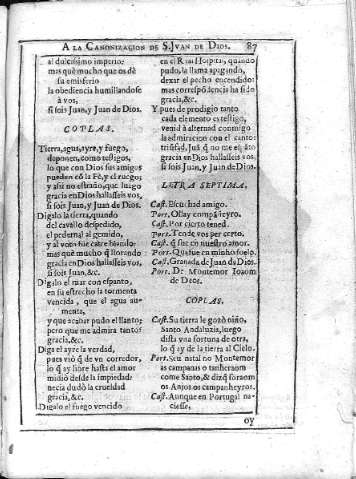 A LA CANONIZACION DE S. JVAN DE DIOS. 87
al dulcissimo imperio:
mas què mucho que os dè
su emisferio
la obediencia humillandose
à vos,
si sois Juan, y Juan de Dios.
COPLAS.
Tierra, agua, ayre, y fuego,
deponen, como testigos,
lo que con Dios sus amigos
pueden cõ la Fè, y el ruego;
y assi no estraño, que luego
gracia en Dios hallasseis vos,
si sois Juan, y Juan de Dios.
Digalo la tierra, quando
del cavallo despedido,
el pedernal al gemido,
y al voto fue catre blando:
mas què mucho q̃ llorando
gracia en Dios hallasseis vos,
si sois Juan, &c.
Digalo el mar con espanto,
en su estrecho la tormenta
vencida, que el agua aumenta,
y que acabar pudo el llanto;
pero que me admira tantos
gracia, &c.
Diga el ayre la verdad,
pues viò q̃ de un corredor,
lo q̃ ay libre hasta el amor
midiò desde la impiedad:
necia dudò la crueldad
gracia, &c.
Digalo el fuego vencido
en el Real Hospital, quando
pudo, la llama apagando,
dexar el pecho encendido:
mas correspõdencia ha sido
gracia, &c.
Y pues de prodigio tanto
cada elemento es testigo,
venid à alternad conmigo
la admiracion con el canto:
gracia en Dios hallasseis vos,
si sois Juan, y Juan de Dios.
LETRA SEPTIMA.
Cast. Escuchad amigo.
Port. Ollay compañheyro.
Cast. Por cierto tened.
Port. Tende vos per certo.
Cast. q̃ fue en nuestro amor.
Port. Que fue en minho foelo.
Cast. Granada de Juan de Dios.
Port. De Montemor Ioaom
de Deos.
COPLAS.
Cast. Su tierra le gozò niño,
Santo Andaluzia, luego
dista una fortuna de otra,
lo q̃ ay de la tierra al Cielo.
Port. Seu natal no Montemor
as campanas o tanheraom
come Santo, & dizq̃ foraom
os Anjos os campanheyros.
Cast. Aunque en Portugal naciesse,
oy